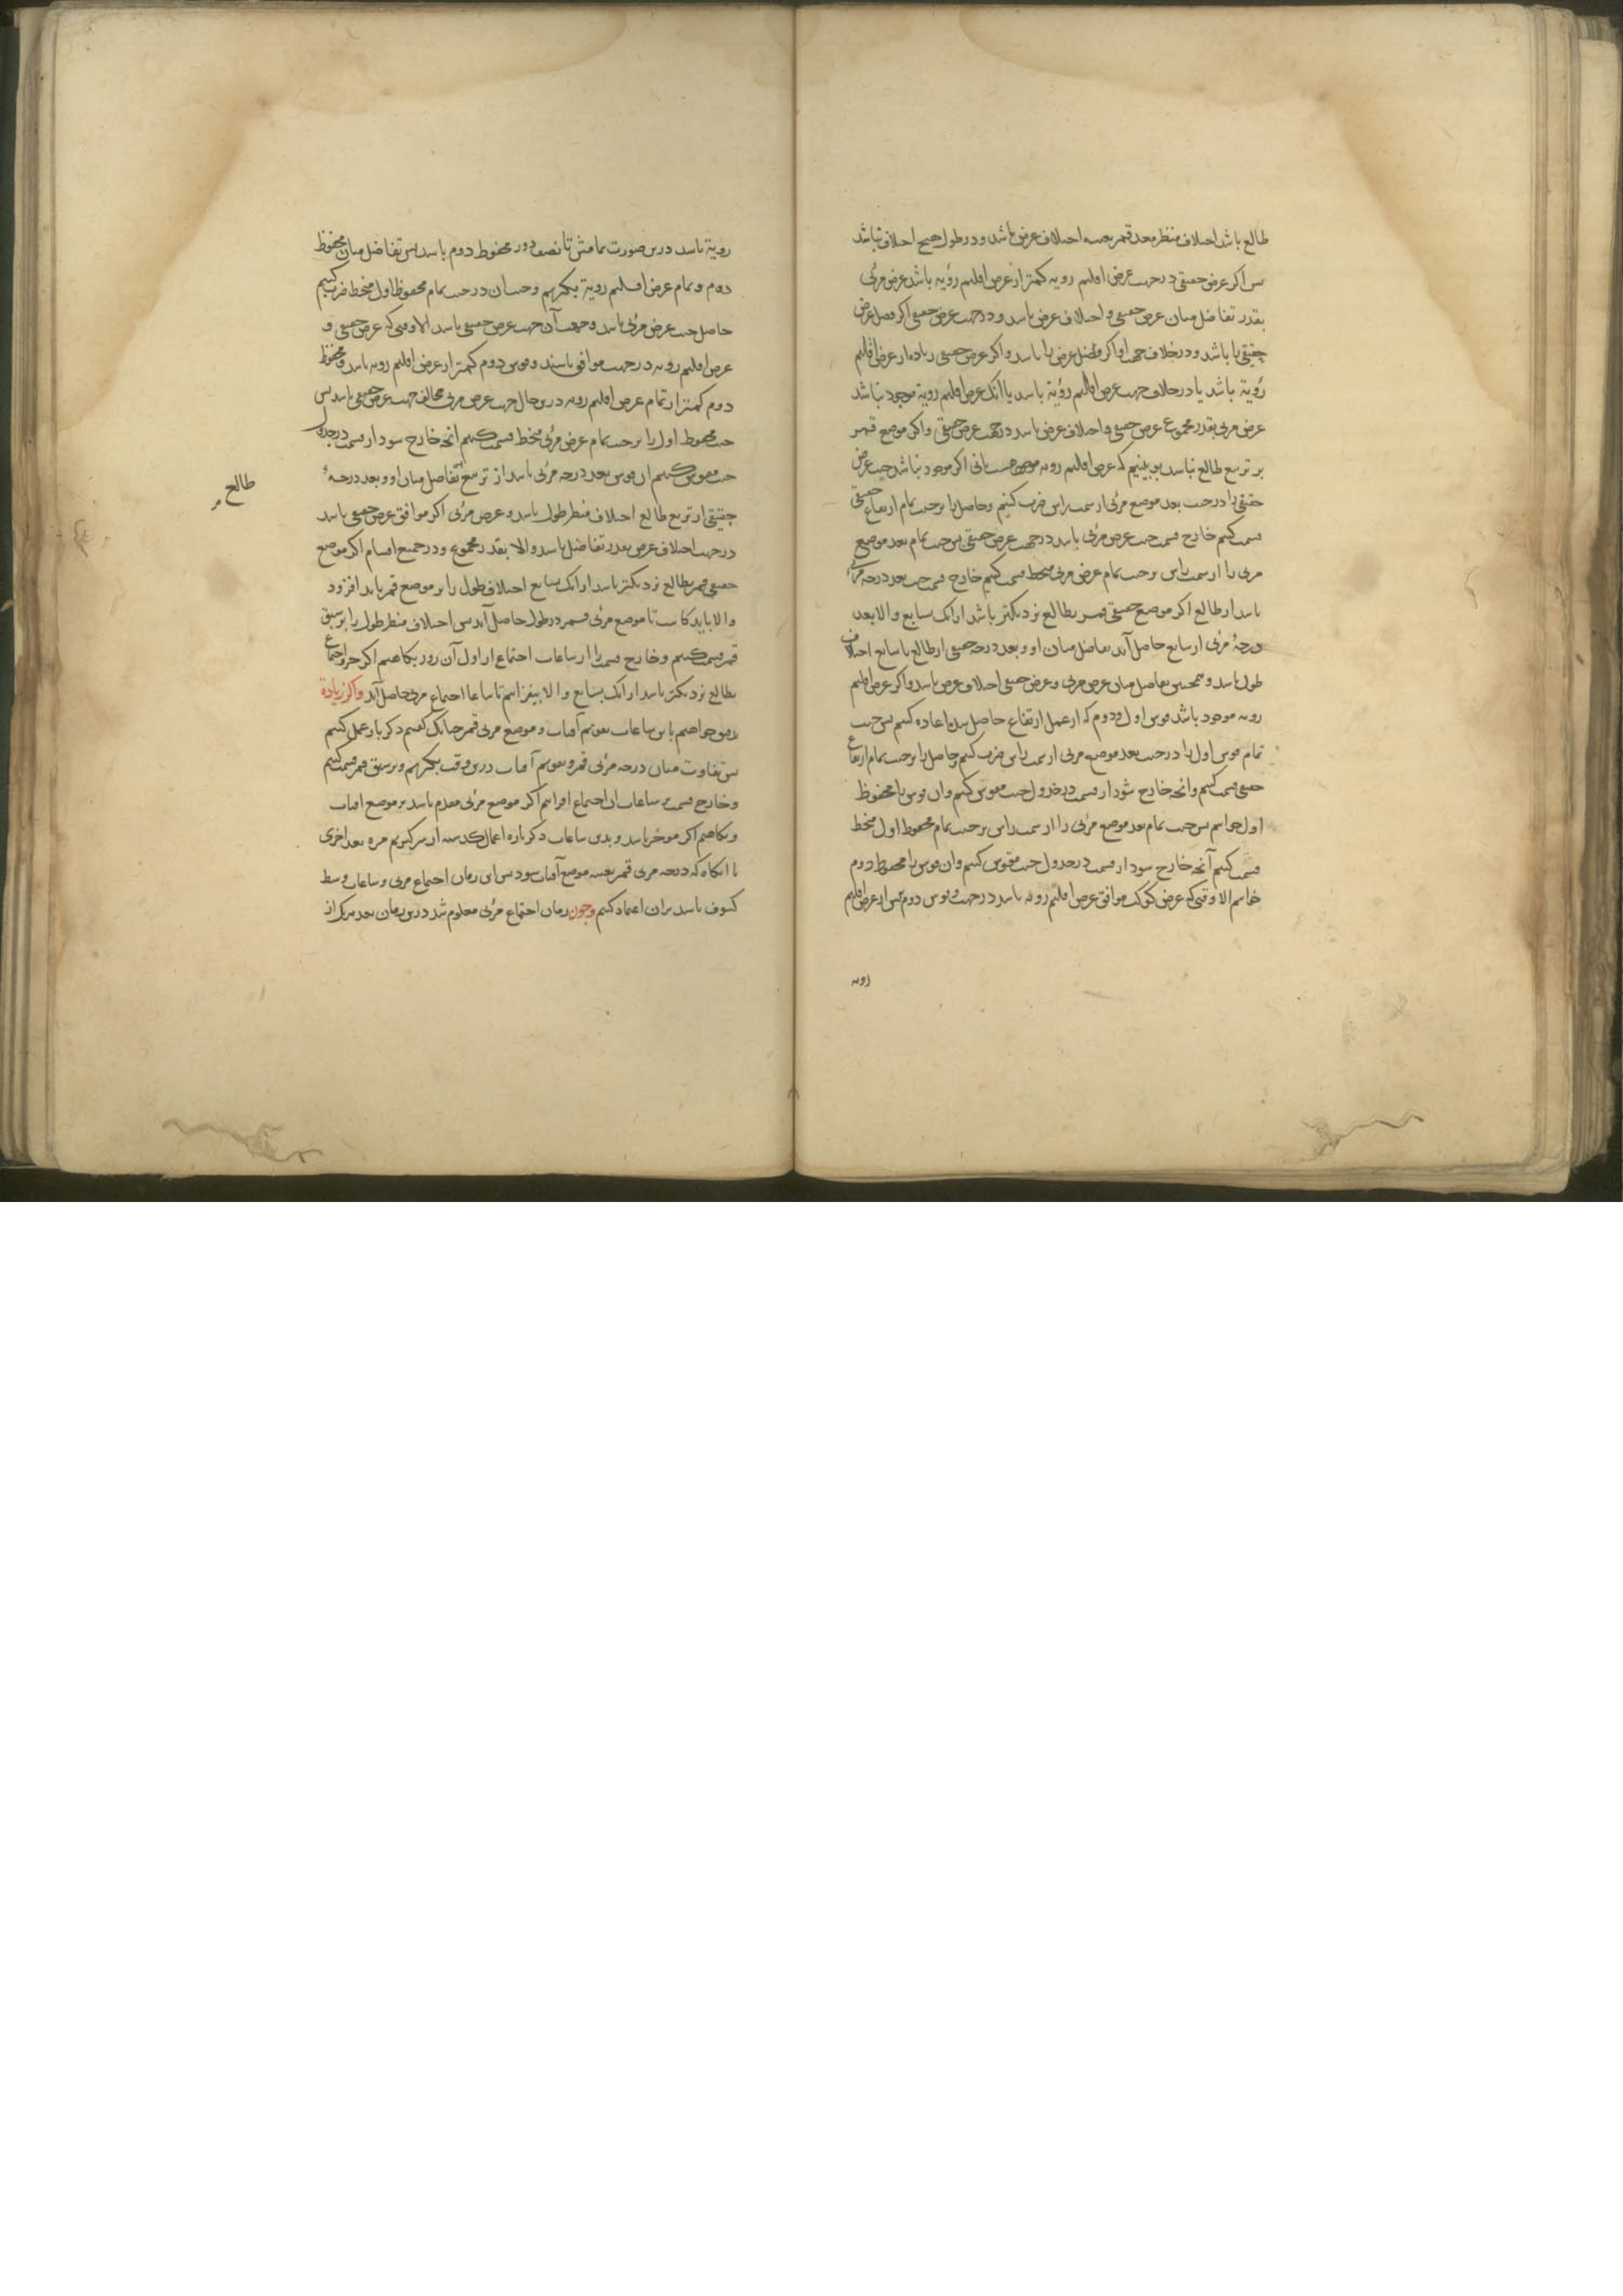 طالع باشد اختلاف منظر بعد قمر بعینه اختلاف عرض باشد و در طول هیچ اختلاف نباشد
پس اگر عرض حقیقی در جهت عرض اقلیم رویه کمتر از عرض اقلیم رؤیه باشد عرض مرئی
بقدر تفاضل میان عرض حقیقی و اختلاف عرض باشد و در جهت عرض حقیقی اگر فضل عرض
حقیقی را باشد و در خلاف جهت او اگر فضل عرض را باشد و اگر عرض حقیقی زیاده از عرض اقلیم
رؤیة باشد یا در خلاف جهت عرض اقلیم رؤیة باشد یا انک عرض اقلیم رویة موجود نباشد
عرض مرئی بقدر مجموع عرض حقیقی و اختلاف عرض باشد در جهت عرض حقیقی و اکر موضع قمر
بر تربیع طالع نباشد بنینیم که عرض اقلیم رویه موجود هست یانی اکر موجود نباشد جیب عرض
حقیقی را در جیب بعد موضع مرئی از سمت راس ضرب کنیم و حاصل را بر جیب تمام ارتفاع حقیقی
قسمت کنیم خارج قسمت جیب عرض مرئی باشد در جهت عرض حقیقی پس جیب تمام بعد موضع
مرئی را از سمت راس بر جیب تمام عرض مرئی منحط قسمت کنیم خارج قسمت جیب بعد درجه مرئی
باشد از طالع اکر موضع حقیقی قمر بطالع نزدیکتر باشد از انک بسابع و الا بعد
درجهٔ مرئی از سابع حاصل آید تفاضل میان او و بعد درجه حقیقی از طالع یا سابع اختلاف
طول باشد و همچنین تفاضل میان عرض مرئی و عرض حقیقی اختلاف عرض باشد و اکر عرض اقلیم
رویه موجود باشد قوس اول و دوم که از عمل ارتفاع حاصل شده اعاده کنیم پس جیب
تمام قوس اول را در جیب بعد موضع مرئی از سمت راس ضرب کنیم و حاصل را بر جیب تمام ارتفاع
حقیقی قسمت کنیم و انچه خارج شود از قسمت در جدول جیب مقوس کنیم و ان قوس را محفوظ
اول خوانیم پس جیب تمام بعد موضع مرئی را از سمت راس بر جیب تمام محفوظ اول منحط
قسمت کنیم آنچه خارج شود از قسمت در جدول جیب مقوس کنیم و ان قوس را محفوظ دوم
خوانیم الا وقتی که عرض کوکب موافق عرض اقلیم رویه باشد در جهت و قوس دوم بیش از عرض اقلیم
رویه
رویة باشد درین صورت تمامش تا نصف دور محفوظ دوم باشد پس تفاضل میان محفوظ
دوم و تمام عرض اقلیم رویة بکیریم و جیب ان در جیب تمام محفوظ اول منحط ضرب کنیم
حاصل جیب عرض مرئی باشد و جهت آن جهت عرض حقیقی باشد الا وقتی که عرض حقیقی و
عرض اقلیم رویه در جهت موافق باشند و قوس دوم کمتر از عرض اقلیم رویه باشد و محفوظ
دوم کمتر از تمام عرض اقلیم رویه درین حال جهت عرض مرئی مخالف جهت عرض حقیقی باشد پس
جیب محفوظ اول را بر جیب تمام عرض مرئی منحط قسمت کنیم انچه خارج شود از قسمت در جدول
جیب مقوس کنیم ان قوس بعد درجه مرئی باشد از تربیع تفاضل میان او و بعد درجهٔ
طالع
حقیقی از تربیع طالع اختلاف منظر طول باشد و عرض مرئی اکر موافق عرض حقیقی باشد
در جهت اختلاف عرض بقدر تفاضل باشد و الا بقدر مجموع و در جمیع اقسام اکر موضع
حقیقی قمر بطالع نزدیکتر باشد از انک بسابع اختلاف طول را بر موضع قمر باید افزود
و الا باید کاست تا موضع مرئی قمر در طول حاصل آید پس اختلاف منظر طول را بر سبق
قمر قسمت کنیم و خارج قسمت را از ساعات اجتماع از اول آن روز بکاهیم اکر جزو اجتماع
بطالع نزدیکتر باشد از انک بسابع و الا بیفزاییم تا ساعات اجتماع مرئی حاصل آید و اکر زیادة
تدقیق خواهیم باین ساعات تقویم آفتاب و موضع مرئی قمر چنانک کفتیم دکر بار عمل کنیم
پس تفاوت میان درجه مرئی قمر و تقویم آفتاب درین وقت بکیریم و بر سبق قمر قسمت کنیم
و خارج قسمت بر ساعات ان اجتماع افزاییم اکر موضع مرئی مقدم باشد بر موضع افتاب
و بکاهیم اکر موخر باشد و بدین ساعات دکر باره اعمال کذشته از سر کیریم مرة بعد اخری
تا انکاه که درجه مرئی قمر بعینه موضع آفتاب شود پس این زمان اجتماع مرئی و ساعات وسط
کسوف باشد بران اعتماد کنیم و چون زمان اجتماع مرئی معلوم شد درین زمان بعد مرکز از